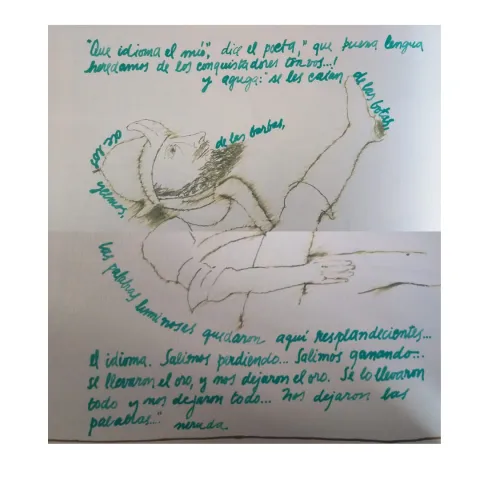 "Que idioma el mío", dice el poeta," que buena lengua
heredamos de los conquistadores torvos...!
y agrega: "se les caían
de las botas,
de las barbas,
de los yelmos,
las palabras luminosas quedaron aquí resplandecientes...
el idioma. Salimos perdiendo... Salimos ganando...
se llevaron el oro, y nos dejaron el oro. Se lo llevaron
todo y nos dejaron todo... nos dejaron las
palabras..."
neruda